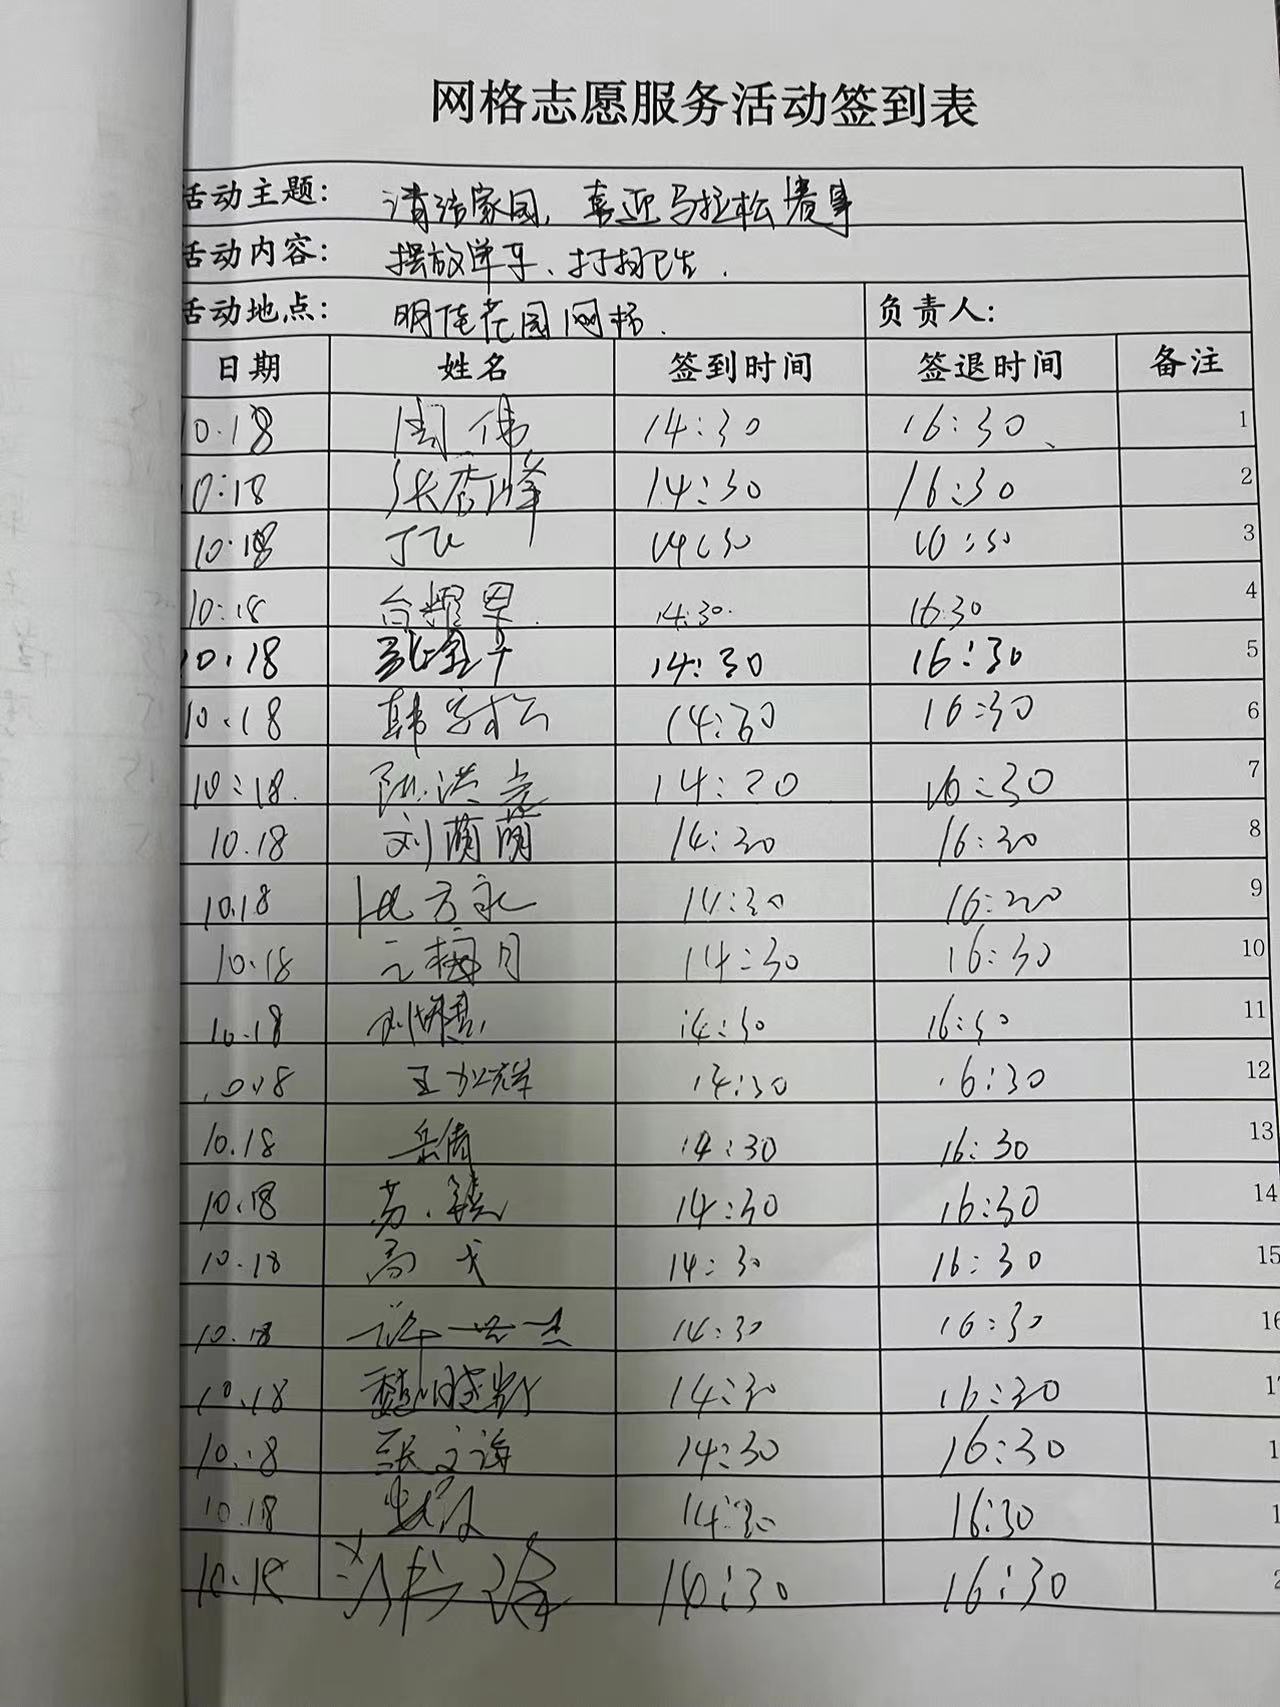 网格志愿服务活动签到表
活动主题: 清洁家园, 喜迎马拉松赛事
活动内容: 摆放单车、打扫卫生.
活动地点: 明佳花园网格. 负责人:
日期 姓名 签到时间 签退时间 备注
10.18 周伟 14:30 16:30 1
10:18 张香峰 14:30 16:30 2
10:18 丁飞 14:30 16:30 3
10:18 白耀 14:30 16:30 4
10.18 14:30 16:30 5
10.18 韩 松 14:30 16:30 6
10:18. 陈洪亮 14:20 16:30 7
10.18 刘萌萌 14:30 16:30 8
10.18 方永 14:30 16:20 9
10.18 梅月 14:30 16:30 10
10.18 刘 14:30 16:30 11
10.18 王加祥 14:30 16:30 12
10.18 岳倩 14:30 16:30 13
10.18 苏镜 14:30 16:30 14
10.18 高 14:30 16:30 15
10.18 许 14:30 16:30 16
10.18 魏晓 14:30 16:30 1
10.18 张文海 14:30 16:30 1
10.18 14:30 16:30 1
10.18 14:30 16:30 2